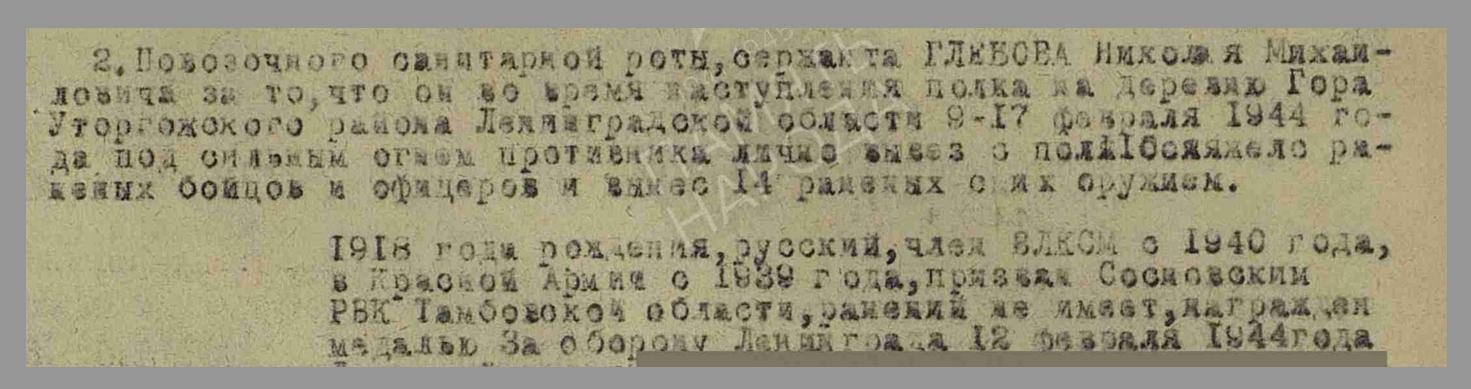 2.Повозочного санитарной роты,сержанта ГЛЕБОВА Николая Михай-
ловича за то,что он во время наступления полка на деревню Гора
Уторгожского района Ленинградской области 9-17 февраля 1944 го-
да под сильным огнем противника лично вывез с поля 16 тяжело ра-
неных бойцов и офицеров и вынес 14 раненых с их оружием.
1918 года рождения,русский,член ВЛКСМ с 1940 года,
в Красной Армии с 1939 года,призван Сосновским
РВК Тамбовской области,ранений не имеет,награжден
медалью За оборону Ленинграда 12 февраля 1944года